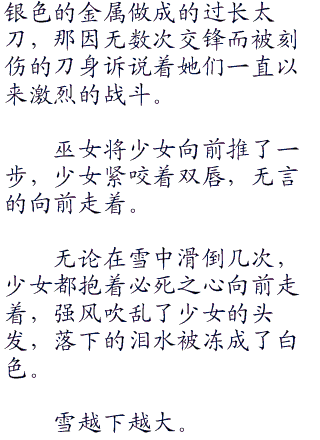 银色的金属做成的过长太
刀，那因无数次交锋而被刻
伤的刀身诉说着她们一直以
来激烈的战斗。
巫女将少女向前推了一
步，少女紧咬着双唇，无言
的向前走着。
无论在雪中滑倒几次，
少女都抱着必死之心向前走
着，强风吹乱了少女的头
发，落下的泪水被冻成了白
色。
雪越下越大。